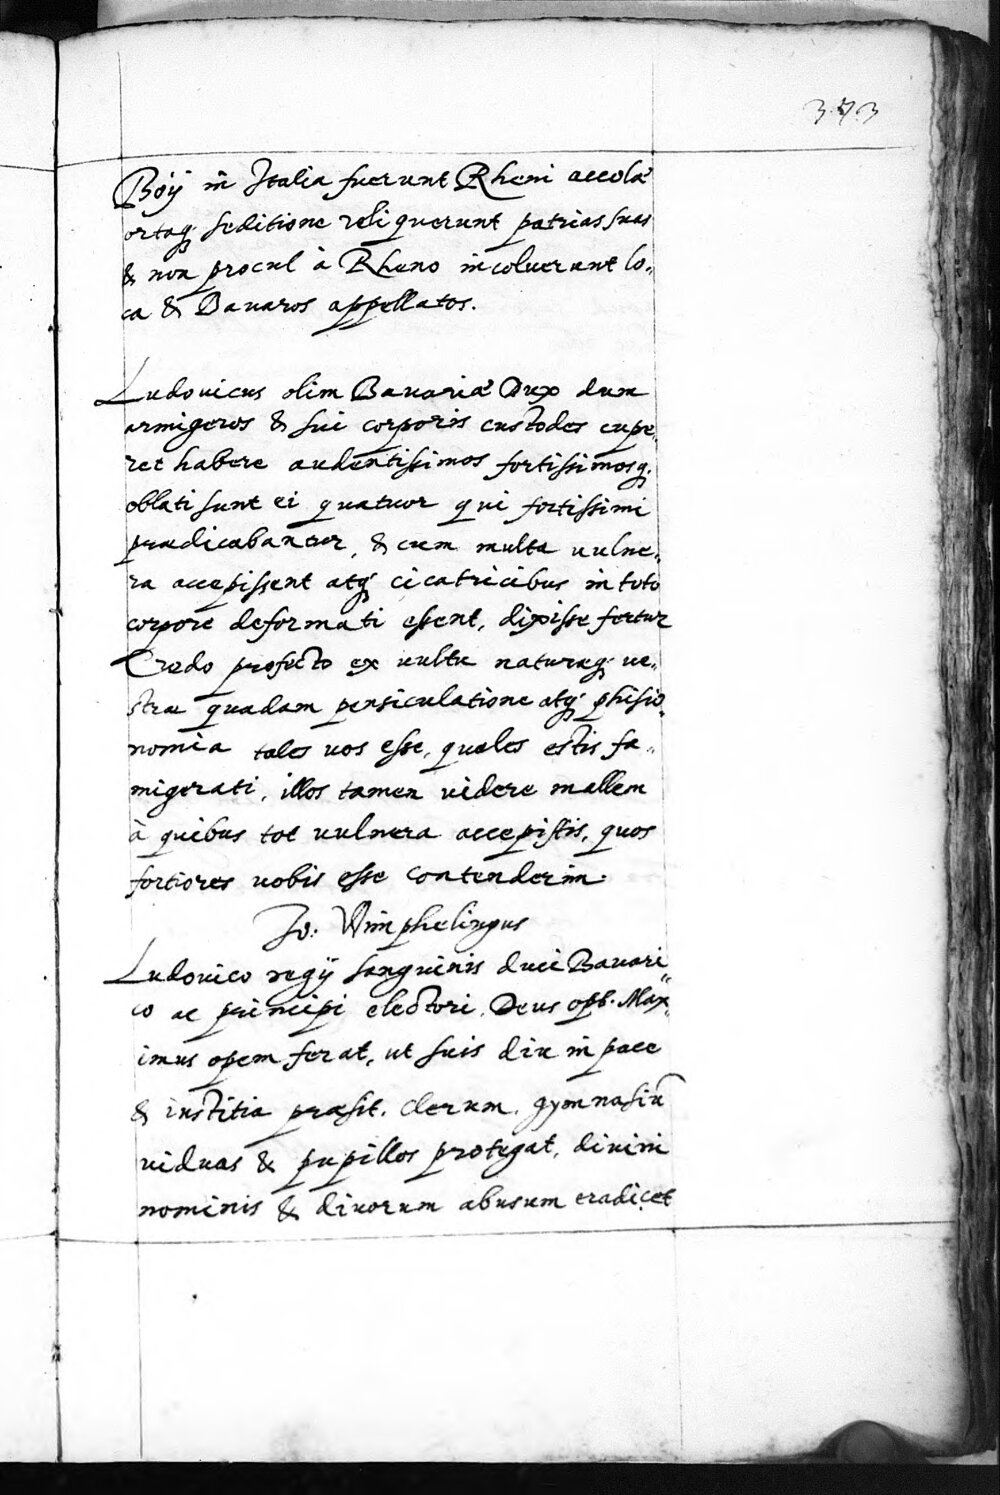 373
Boÿ in Italia fuerunt Rheni accolæ
ortaq; seditione reliquerunt patrias suas
& non procul à Rheno incoluerunt lo„
ca & Bavaros appellatos.
Ludovicus olim Bavariæ Dux dum
armigeros & sui corporis custodes cupe„
ret habere audentissimos fortissimosq;
oblati sunt ei quatuor qui fortissimi
prædicabantur, & cum multa uulne„
ra accepissent atq; cicatricibus in toto
corpore deformati essent, dixisse fertur
Credo profecto ex uultu naturæq; ue„
stræ quadam persiculatione atq; phisio„
nomia tales uos esse, quales estis fa„
migerati, illos tamen videre mallem
à quibus tot uulnera accepistis, quos
fortiores uobis esse contenderim.
Jo: Wimphelingus
Ludovico regÿ sanguinis duci Bavari„
co ac principi electori, Deus opt. Max„
imus opem ferat, ut suis diu in pace
& iustitia præsit. Clerum, gymnasiū
viduas & pupillos protegat, divini
nominis & divorum abusum eradicet